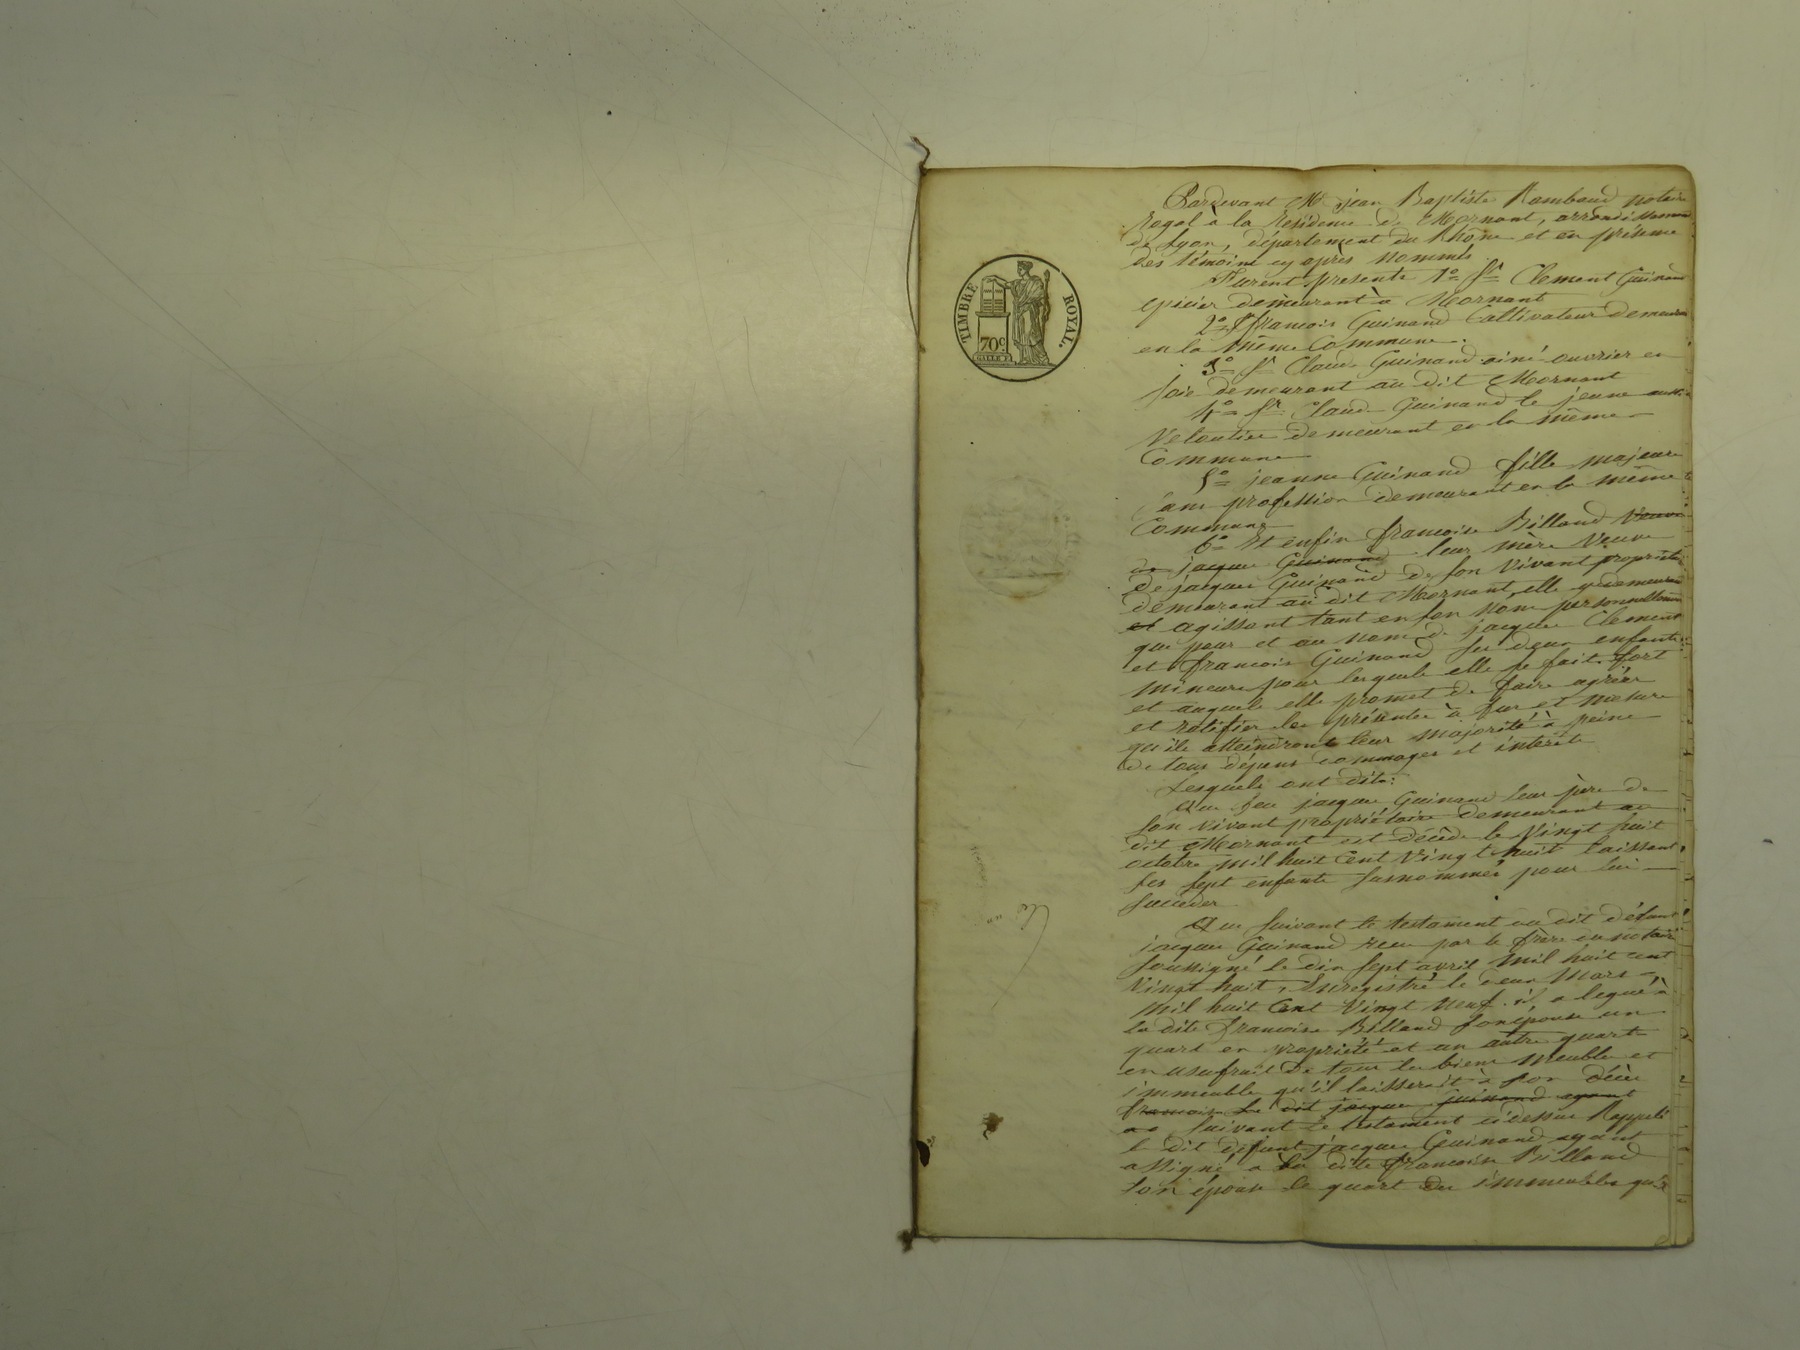 TIMBRE ROYAL.
70c
Pardevant Me jean Baptiste Rambaud notaire
Royal à la Residence de Mornant, arrondissement
de Lyon, département du Rhône et en présence
des témoins cy après nommés
Furent présents 1° Sr Clement Guinand
epicier demeurant à Mornant
2° Sr francois Guinand Cultivateur demeurant
en la même Commune.
3° Sr Claude Guinand ainé ouvrier en
soie demeurant au dit Mornant
4° Sr Claude Guinand le jeune aussi
Veloutier demeurant en la même
Commune
5° jeanne Guinand fille majeure
sans profession demeurant en la même
Commune
6° Et enfin francoise Billaud Veuve
de jacques Guinand leur mère Veuve
de jacques Guinand de son Vivant propriétaire
demeurant au dit Mornant, elle y demeurant
et agissant tant en son nom personnellement
que pour et au nom de jacques Clement
et francois Guinand ses deux enfants
mineurs pour lesquels elle se fait fort
et auquels elle promet de faire agréer
et ratifier les présentes à fur et mesure
qu'ils atteindront leur majorité à peine
de tous dépens dommages et intérêts
Lesquels ont dits:
Que feu jacques Guinand leur père de
son vivant propriétaire demeurant au
dit Mornant est décédé le Vingt huit
octobre mil huit Cent Vingt huit laissant
ses sept enfants surnommés pour lui
succéder
Que suivant le testament du dit défunt
jacques Guinand recu par le frère du notaire
soussigné le dix sept avril mil huit cent
Vingt huit, Enregistré le deux Mars
mil huit Cent Vingt neuf. il a legué à
la dite francoise Billaud son épouse un
quart en propriété et un autre quart
en usufruit de tous les biens meubles et
immeubles qu'il laisserait à son décès
francoise Le dit jacques Guinand ayant
suivant le testament cidessus Rappelé
le dit défunt jacques Guinand ayant
assigné a la dite francoise Billaud
son épouse le quart des immeubles qu'il